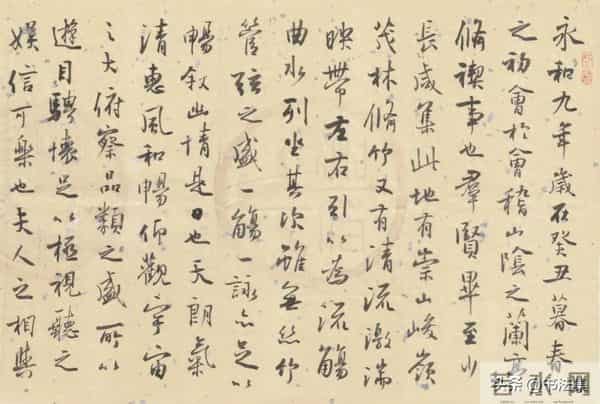 永和九年歲在癸丑暮春
之初會於會稽山陰之蘭亭
脩禊事也羣賢畢至少
長咸集此地有崇山峻嶺
茂林脩竹又有清流激湍
映帶左右引以為流觴
曲水列坐其次雖無絲竹
管弦之盛一觴一詠亦足以
暢叙幽情是日也天朗氣
清惠風和暢仰觀宇宙
之大俯察品類之盛所以
遊目騁懷足以極視聽之
娛信可樂也夫人之相與
头条